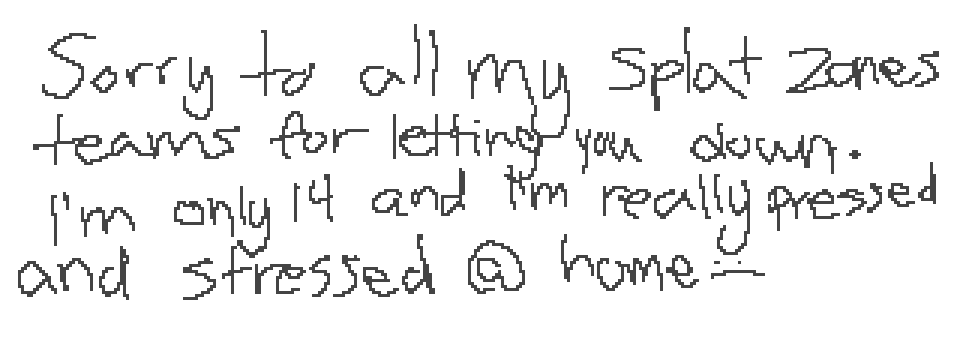 Sorry to all my Splat Zones
teams for letting you down.
I'm only 14 and I'm really pressed
and stressed @ home